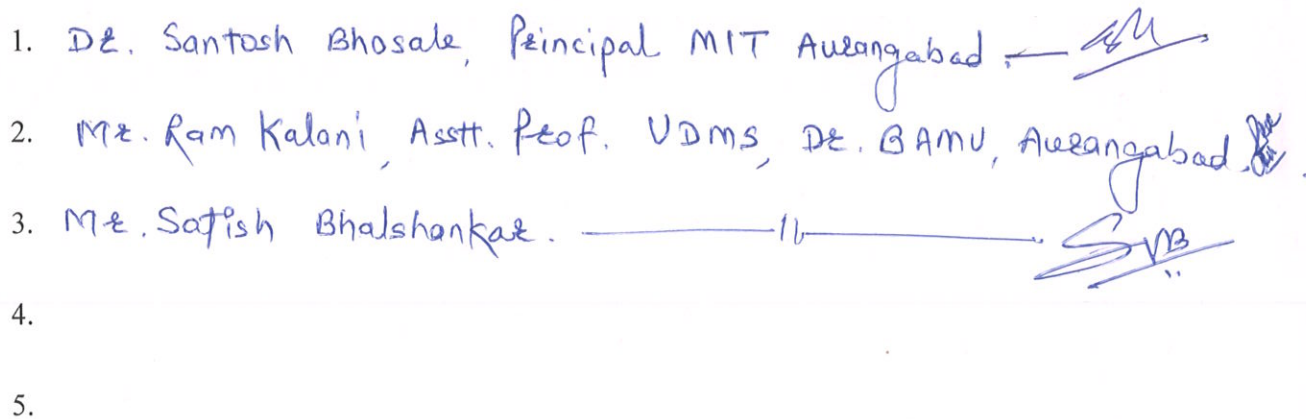 1. Dr. Santosh Bhosale, Principal MIT Aurangabad.
2. Mr. Ram Kalani, Asstt. Prof. UDMS, Dr. BAMU, Aurangabad.
3. Mr. Satish Bhalshankar. ——— 11 ———. SVB
4.
5.